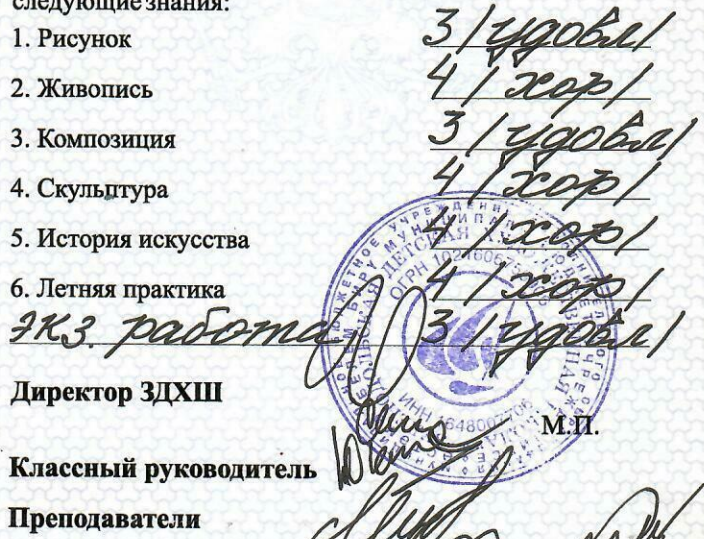 следующие знания:
1. Рисунок 3 /удовл/
2. Живопись 4 /хор/
3. Композиция 3 /удовл/
4. Скульптура 4 /хор/
5. История искусства 4 /хор/
6. Летняя практика 4 /хор/
экз. работа 3 /удовл/
Директор ЗДХШ
М.П.
Классный руководитель
Преподаватели